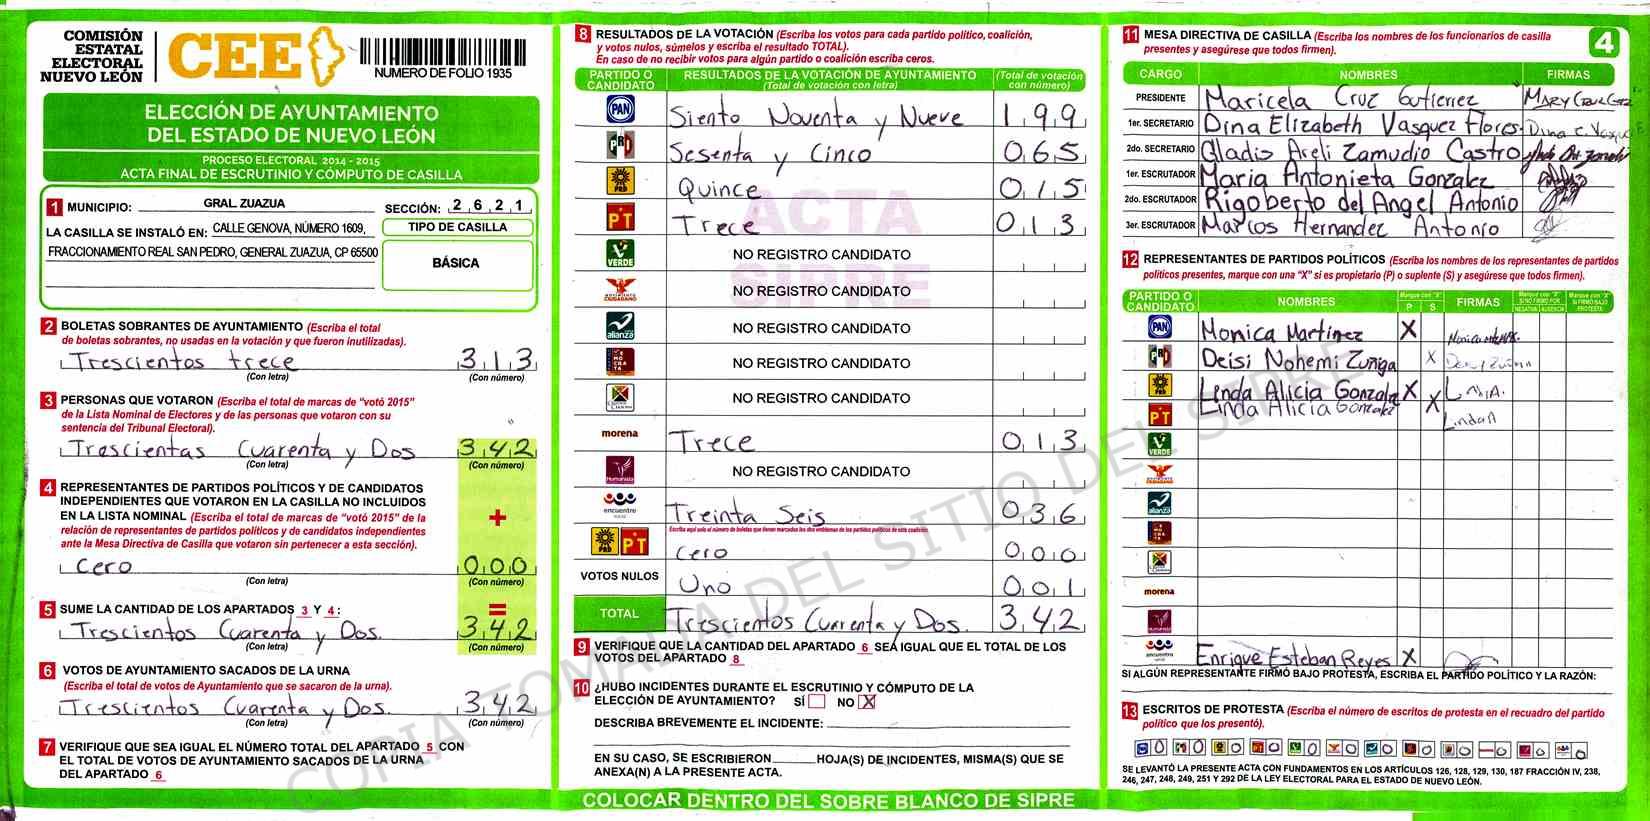 COMISIÓN
ESTATAL
ELECTORAL
NUEVO LEÓN
CEE
NUMERO DE FOLIO 1935
ELECCIÓN DE AYUNTAMIENTO
DEL ESTADO DE NUEVO LEÓN
PROCESO ELECTORAL 2014 - 2015
ACTA FINAL DE ESCRUTINIO Y CÓMPUTO DE CASILLA
1 MUNICIPIO: GRAL ZUAZUA SECCIÓN: 2 6 2 1
LA CASILLA SE INSTALÓ EN: CALLE GENOVA, NÚMERO 1609,
FRACCIONAMIENTO REAL SAN PEDRO, GENERAL ZUAZUA, CP 65500
TIPO DE CASILLA
BÁSICA
2 BOLETAS SOBRANTES DE AYUNTAMIENTO (Escriba el total
de boletas sobrantes, no usadas en la votación y que fueron inutilizadas).
Trescientos trece 3 1 3
(Con letra) (Con número)
3 PERSONAS QUE VOTARON (Escriba el total de marcas de "votó 2015"
de la Lista Nominal de Electores y de las personas que votaron con su
sentencia del Tribunal Electoral).
Trescientas Cuarenta y Dos 3 4 2
(Con letra) (Con número)
4 REPRESENTANTES DE PARTIDOS POLÍTICOS Y DE CANDIDATOS
INDEPENDIENTES QUE VOTARON EN LA CASILLA NO INCLUIDOS
EN LA LISTA NOMINAL (Escriba el total de marcas de "votó 2015" de la
relación de representantes de partidos políticos y de candidatos independientes
ante la Mesa Directiva de Casilla que votaron sin pertenecer a esta sección).
+
Cero 0 0 0
(Con letra) (Con número)
5 SUME LA CANTIDAD DE LOS APARTADOS 3 Y 4 : =
Trescientos Cuarenta y Dos. 3 4 2
(Con letra) (Con número)
6 VOTOS DE AYUNTAMIENTO SACADOS DE LA URNA
(Escriba el total de votos de Ayuntamiento que se sacaron de la urna).
Trescientos Cuarenta y Dos. 3 4 2
(Con letra) (Con número)
7 VERIFIQUE QUE SEA IGUAL EL NÚMERO TOTAL DEL APARTADO 5 CON
EL TOTAL DE VOTOS DE AYUNTAMIENTO SACADOS DE LA URNA
DEL APARTADO 6
8 RESULTADOS DE LA VOTACIÓN (Escriba los votos para cada partido político, coalición,
y votos nulos, súmelos y escriba el resultado TOTAL).
En caso de no recibir votos para algún partido o coalición escriba ceros.
PARTIDO O CANDIDATO RESULTADOS DE LA VOTACIÓN DE AYUNTAMIENTO (Total de votación con letra) (Total de votación con número)
PAN Siento Noventa y Nueve 1 9 9
PRD Sesenta y Cinco 0 6 5
PRD Quince 0 1 5
PT Trece 0 1 3
VERDE NO REGISTRO CANDIDATO
CIUDADANO NO REGISTRO CANDIDATO
alianza NO REGISTRO CANDIDATO
NO REGISTRO CANDIDATO
NO REGISTRO CANDIDATO
morena Trece 0 1 3
Humanista NO REGISTRO CANDIDATO
encuentro Treinta Seis 0 3 6
Escriba aquí solo el número de boletas que tienen marcados los dos emblemas de los partidos políticos de esta coalición.
PRD PT Cero 0 0 0
VOTOS NULOS Uno 0 0 1
TOTAL Trescientos Cuarenta y Dos. 3 4 2
ACTA
SIPRE
9 VERIFIQUE QUE LA CANTIDAD DEL APARTADO 6 SEA IGUAL QUE EL TOTAL DE LOS
VOTOS DEL APARTADO 8
10 ¿HUBO INCIDENTES DURANTE EL ESCRUTINIO Y CÓMPUTO DE LA
ELECCIÓN DE AYUNTAMIENTO? SÍ NO X
DESCRIBA BREVEMENTE EL INCIDENTE:
EN SU CASO, SE ESCRIBIERON HOJA(S) DE INCIDENTES, MISMA(S) QUE SE
ANEXA(N) A LA PRESENTE ACTA.
COLOCAR DENTRO DEL SOBRE BLANCO DE SIPRE
11 MESA DIRECTIVA DE CASILLA (Escriba los nombres de los funcionarios de casilla
presentes y asegúrese que todos firmen).
4
CARGO NOMBRES FIRMAS
PRESIDENTE Maricela Cruz Gutierrez
1er. SECRETARIO Dina Elizabeth Vasquez Flores
2do. SECRETARIO Gladis Areli Zamudio Castro
1er. ESCRUTADOR Maria Antonieta Gonzalez
2do. ESCRUTADOR Rigoberto del Angel Antonio
3er. ESCRUTADOR Marcos Hernandez Antonio
12 REPRESENTANTES DE PARTIDOS POLÍTICOS (Escriba los nombres de los representantes de partidos
políticos presentes, marque con una "X" si es propietario (P) o suplente (S) y asegúrese que todos firmen).
PARTIDO O CANDIDATO NOMBRES Marque con "X" P S FIRMAS Marque con "X" SI NO FIRMÓ POR NEGATIVA AUSENCIA Marque con "X" SI FIRMÓ BAJO PROTESTA
PAN Monica Martinez X
PRD Deisi Nohemi Zuñiga X
PRD Linda Alicia Gonzalez X
PT Linda Alicia Gonzalez X Linda A
VERDE
alianza
morena
encuentro Enrique Esteban Reyes X
SI ALGÚN REPRESENTANTE FIRMÓ BAJO PROTESTA, ESCRIBA EL PARTIDO POLÍTICO Y LA RAZÓN:
13 ESCRITOS DE PROTESTA (Escriba el número de escritos de protesta en el recuadro del partido
político que los presentó).
0 0 0 0 0 0 0 0 0 0 0 0
SE LEVANTÓ LA PRESENTE ACTA CON FUNDAMENTOS EN LOS ARTÍCULOS 126, 128, 129, 130, 187 FRACCIÓN IV, 238,
246, 247, 248, 249, 251 Y 292 DE LA LEY ELECTORAL PARA EL ESTADO DE NUEVO LEÓN.
COPIA TOMADA DEL SITIO DEL SIPRE